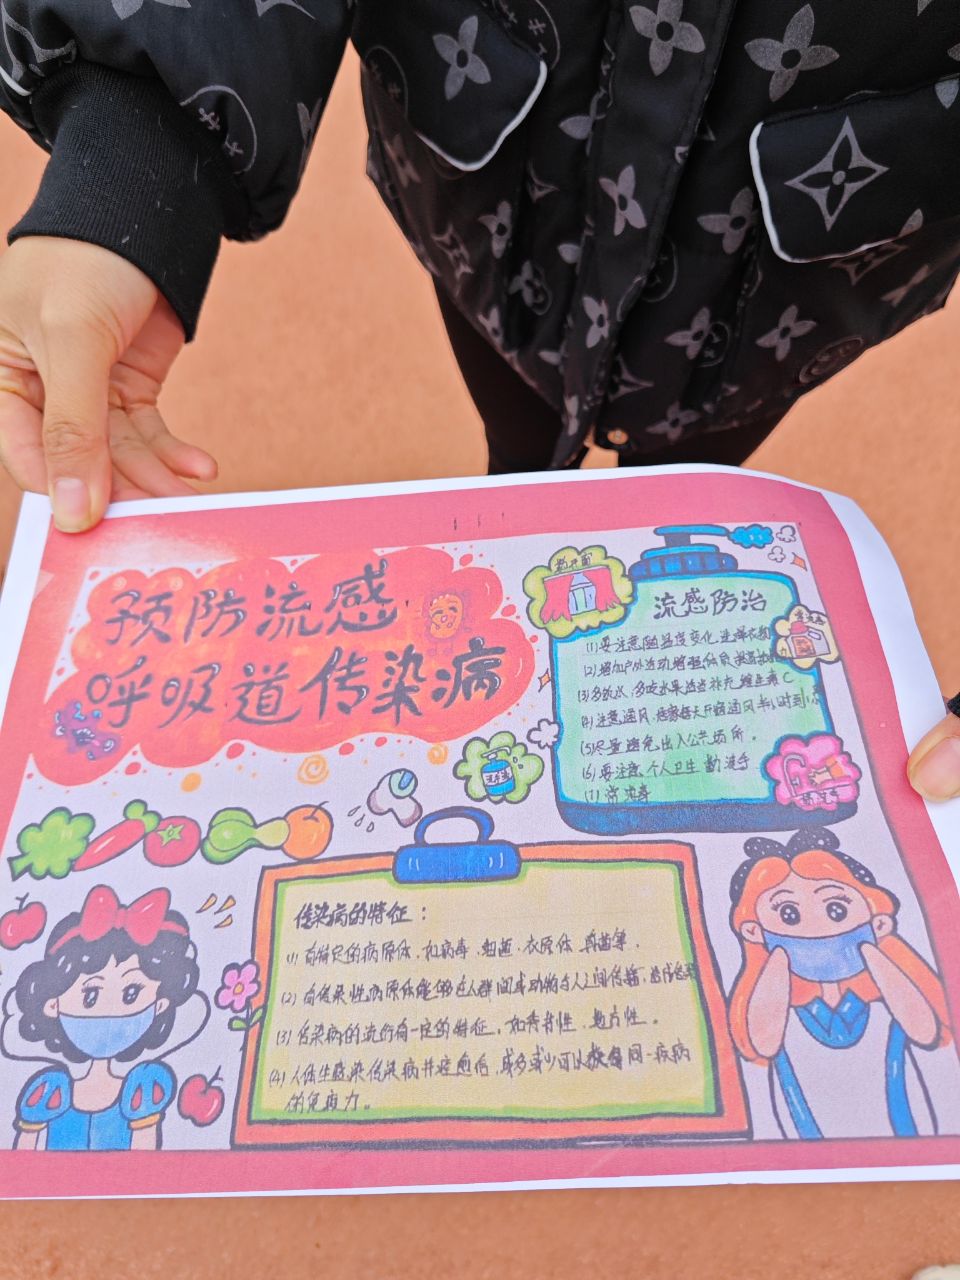 预防流感
呼吸道传染病
流感防治
(1)要注意随温度变化选择衣物
(2)增加户外活动增强体质提高抵
(3)多饮水,多吃水果适当补充维生素C
(4)注意通风,居家每天开窗通风半小时到
(5)尽量避免出入公共场所。
(6)要注意个人卫生勤洗手
(7)常洗
洗手液
传染病的特征:
(1)有特定的病原体,如病毒,细菌,衣原体,真菌等,
(2)有传染性病原体能够在人群间或动物与人之间传播,造成传染
(3)传染病的流行有一定的特征,如季节性,地方性。
(4)人体在感染传染病并痊愈后,或多或少可以获得同一疾病
的免疫力。